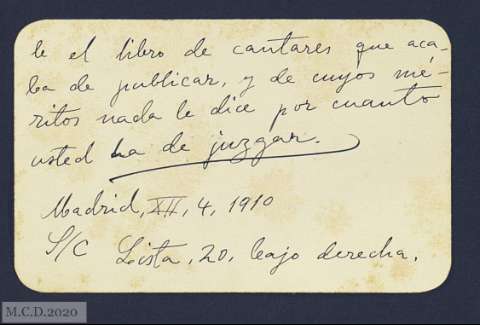 le el libro de cantares que aca-
ba de publicar, y de cuyos mé-
ritos nada le dice por cuanto
usted ha de juzgar.
Madrid, XII, 4, 1910
S/C Lista, 20, bajo derecha.
M.C.D.2020